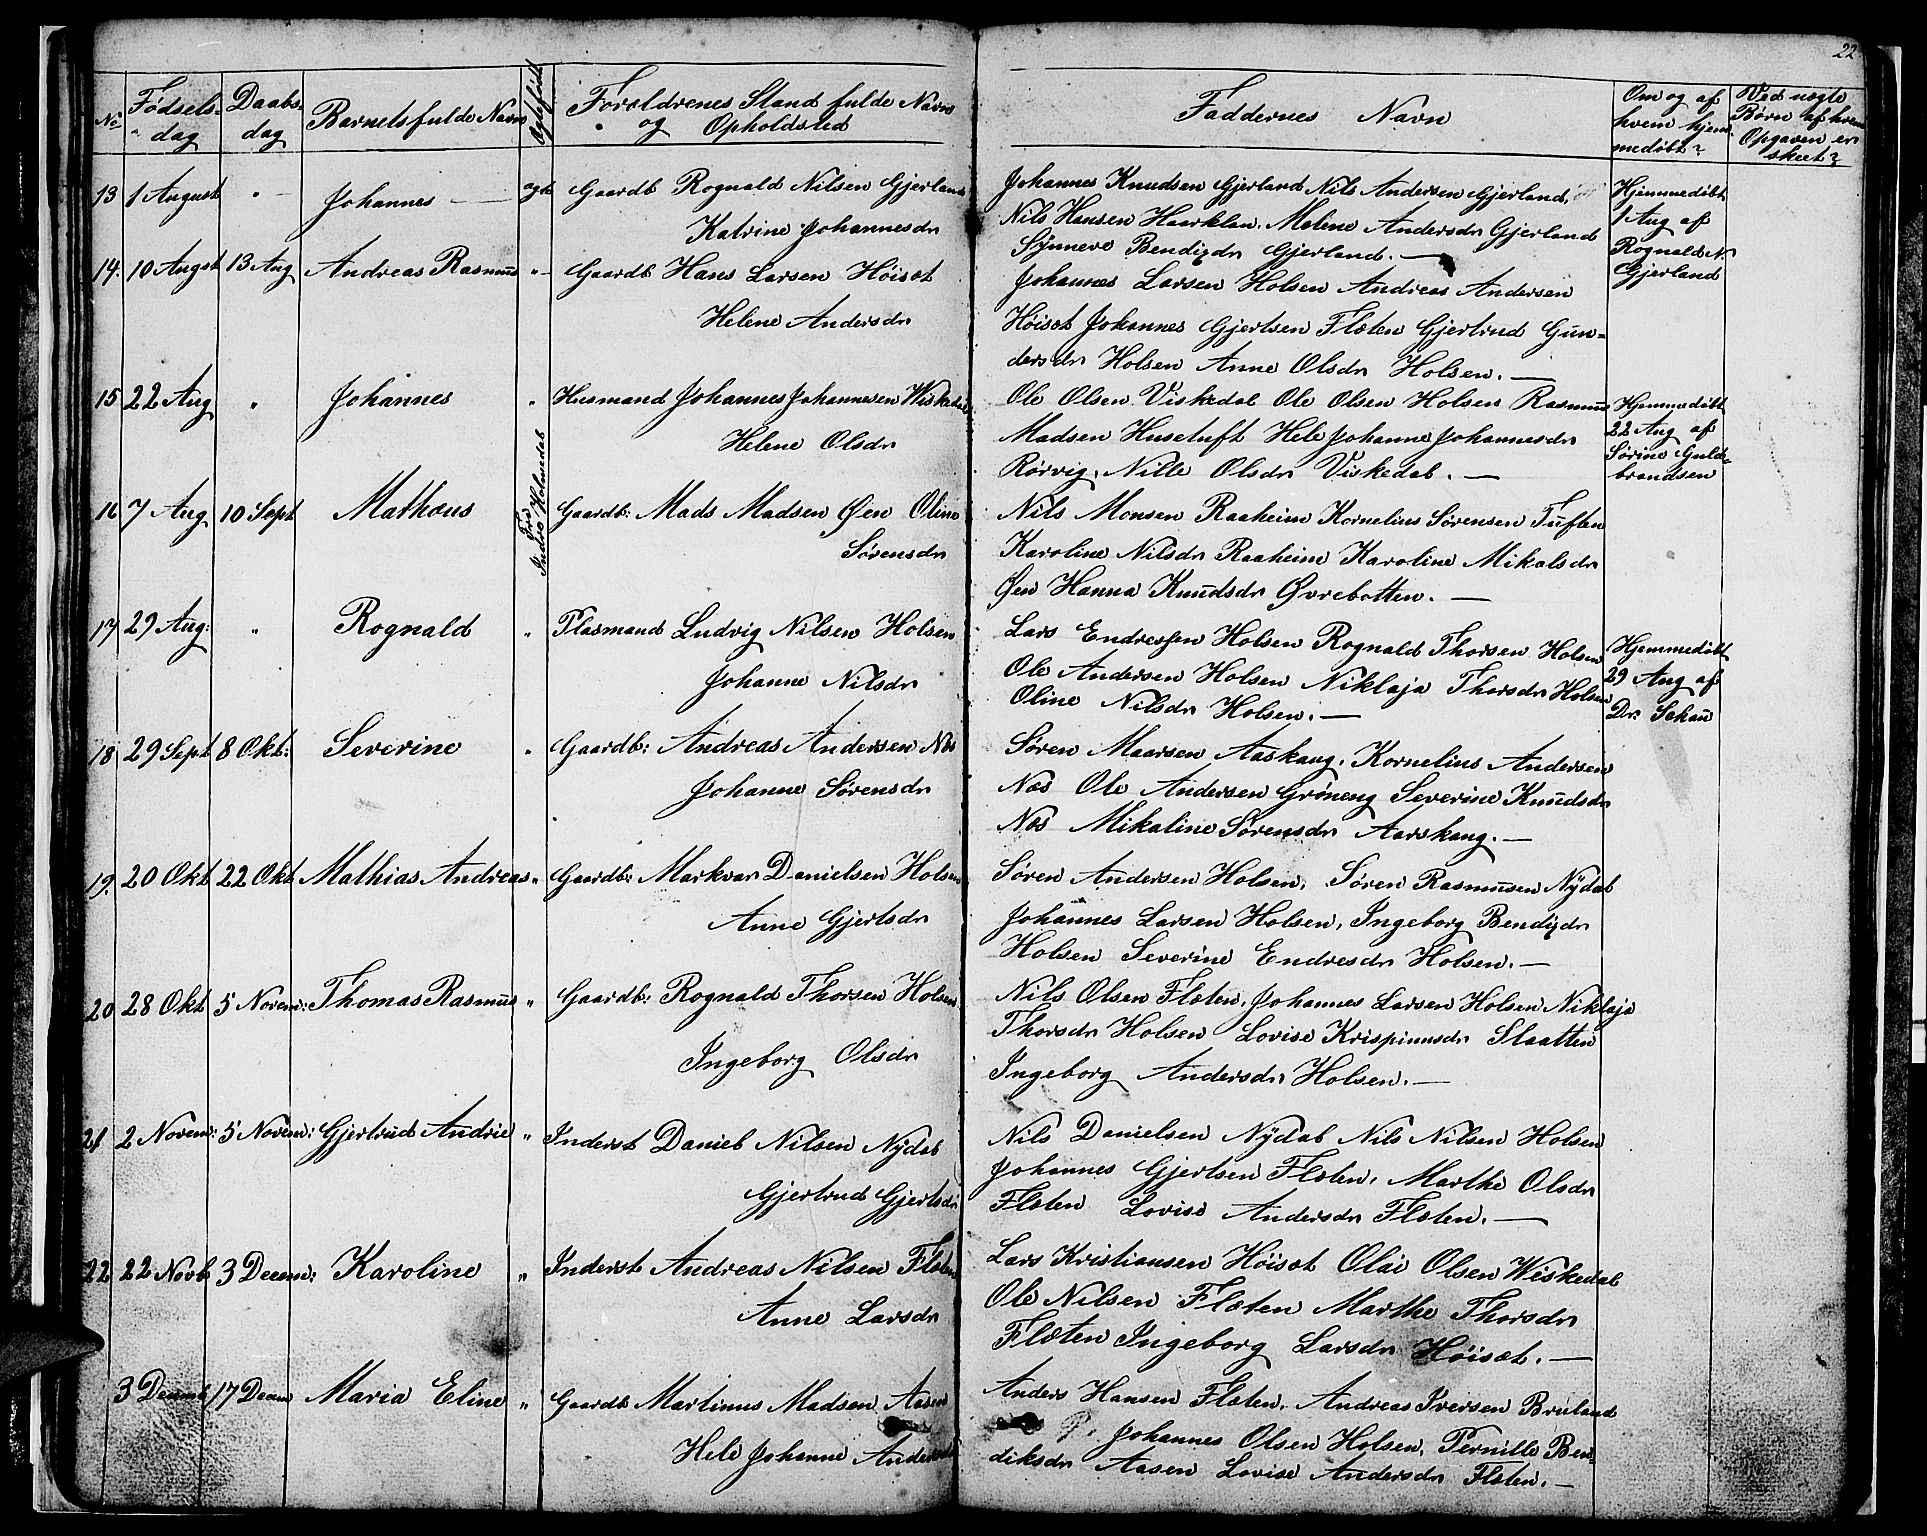 22
No Fødsels-dag Daabs-dag Barnets fulde Navn Ægtefødt Forældrenes Stand fulde Navn og Opholdsted Faddernes Navn Om og af hvem hjemmedøbt? Ved uægte Børn af hvem Opgaven er skeet?
13 1 August " Johannes — ægte Gaardb Rognald Nilsen Gjerland Johannes Knudsen Gjerland Nils Andersen Gjerland, Hjemmedøbt
Katrine Johannesdr Nils Hansen Haarklau. Malene Andersdr Gjerland 1 Aug af
Synneve Bendixdr Gjerland. — Rognald N
14. 10 Augst 13 Aug Andreas Rasmus " Gaardb Hans Larsen Høisæt Johannes Larsen Holsen Andreas Andersen Gjerland
Helene Andersdr Høisæt Johannes Gjertsen Flæten Gjertrud Gun-
dersdr Holsen Anne Olsdr Holsen. —
15 22 Aug " Johannes " Husmand Johannes Johannesen Wiskedal Ole Olsen Viskedal Ole Olsen Holsen Rasmus Hjemmedøbt
Helene Olsdr Madsen Husetuft Hele Johanne Johannesdr 22 Aug af
Rørvig. Nille Olsdr Viskedal. — Sørine Guldbrandsen
16 7 Aug 10 Sept Mathæus Fra Indre Holsedal Gaardb: Mads Madsen Øen Oline Nils Monsen Raaheim Kornelius Sørensen Tuften
Sørensdr Karoline Nilsdr Raaheim Karoline Mikalsdr
Øen Hanna Knudsdr Øvrebotten. —
17 29 Aug: " Rognald " Plasmand Ludvig Nilsen Holsen Lars Endressen Holsen Rognald Thorsen Holsen Hjemmedøbt
Johanne Nilsdr Ole Andersen Holsen Niklaja Thorsdr Holsen 29 Aug af
Oline Nilsdr Holsen. — Dr. Schau
18 29 Sept 8 Okt: Severine " Gaardb: Andreas Andersen Næs Søren Maarsen Aaskaug, Kornelius Andersen
Johanne Sørensdr Næs Ole Andersen Grøneng Severine Knudsdr
Næs Mikaline Sørensdr Aarskaug. —
19. 20 Okt 22 Okt Mathias Andreas " Gaardb: Markvar Danielsen Holsen Søren Andersen Holsen, Søren Rasmusen Nydal
Anne Gjertsdr Johannes Larsen Holsen, Ingeborg Bendixdr
Holsen Severine Endresdr Holsen. —
20 28 Okt 5 Novem: Thomas Rasmus " Gaardb: Rognald Thorsen Holsen Nils Olsen Flæten, Johannes Larsen Holsen Niklaja
Ingeborg Olsdr Thorsdr Holsen Lovise Krispinusdr Slaatten
Ingeborg Andersdr Holsen. —
21 2 Novem: 5 Novem: Gjertrud Andrie " Inderst Daniel Nilsen Nydal Nils Danielsen Nydal Nils Nilsen Holsen
Gjertrud Gjertsdr Johannes Gjertsen Flæten, Marthe Olsdr
Flæten Lovise Andersdr Flæten. —
22 22 Novb 3 Decem: Karoline " Inderst Andreas Nilsen Flæten Lars Kristiansen Høisæt Olai Olsen Wiskedal
Anne Larsdr Ole Nilsen Flæten Marthe Thorsdr
Flæten Ingeborg Larsdr Høisæt. —
3 Decemb 17 Decem Maria Eline " Gaardb Martinus Madsen Aasen Anders Hansen Flæten, Andreas Iversen Bruland
Hele Johanne Andersdr Johannes Olsen Holsen, Pernille Ben-
diksdr Aasen Lovise Andersdr Flæten. —